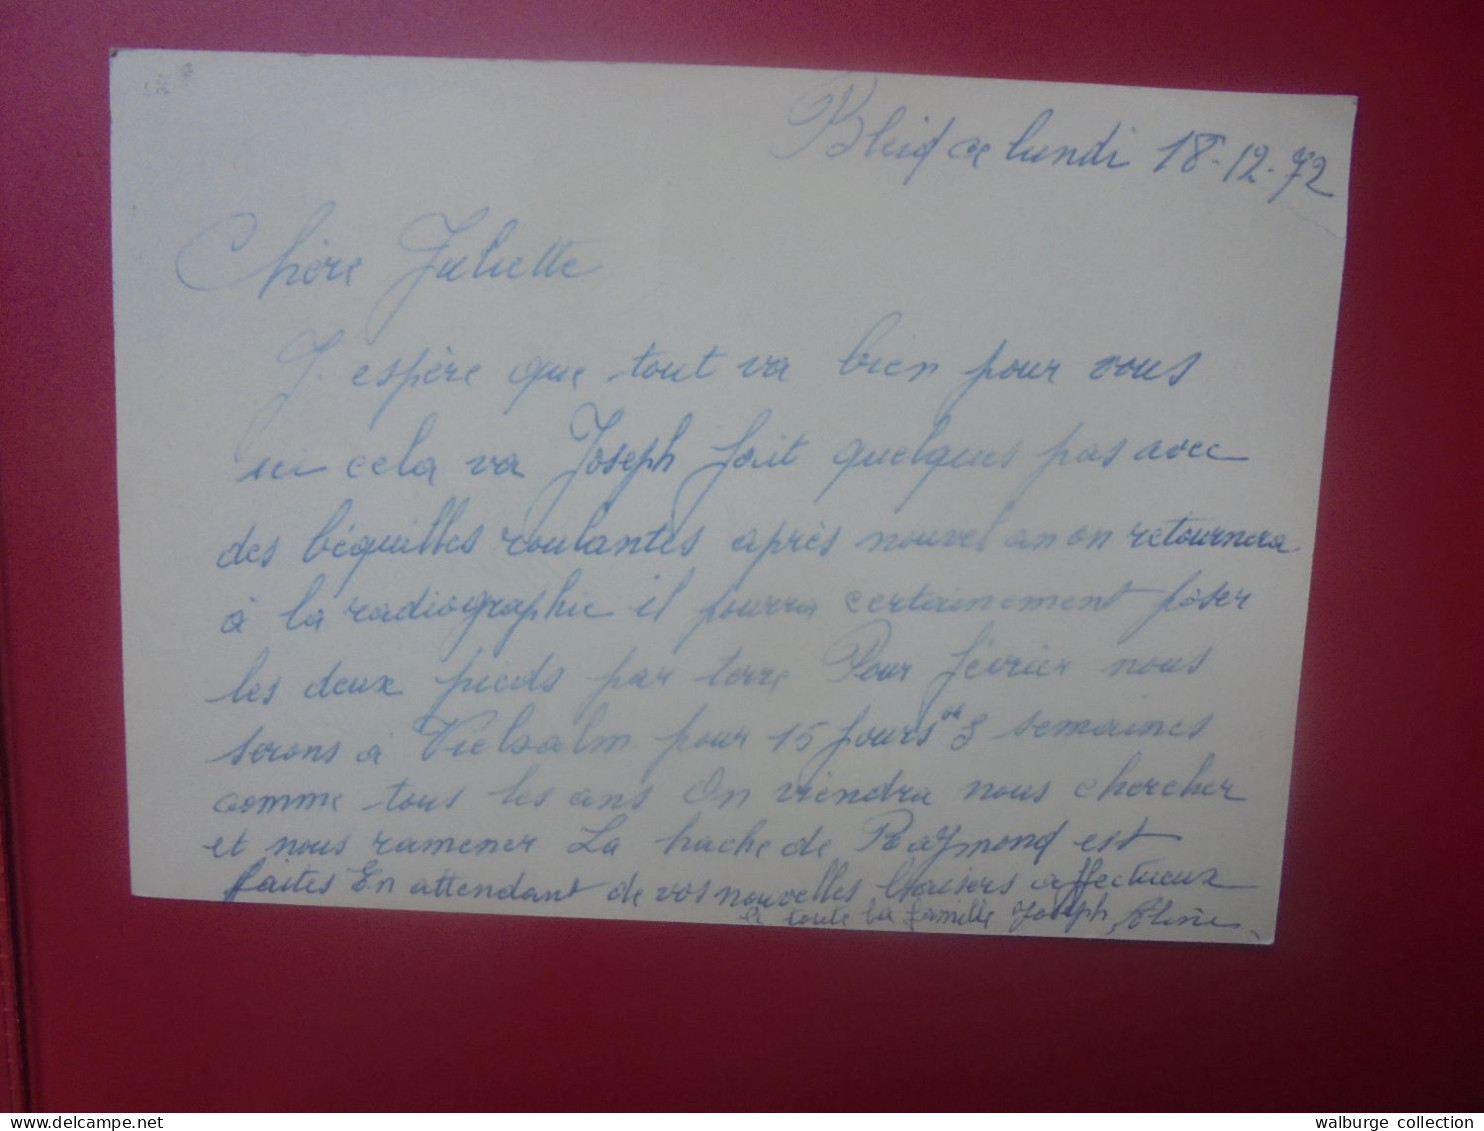 Bleid ce lundi 18-12-72
Chère Juliette
J espère que tout va bien pour vous
ici cela va Joseph fait quelques pas avec
des béquilles roulantes après nouvel an on retournera
à la radiographie il pourra certainement poser
les deux pieds par terre Pour février nous
serons à Vielsalm pour 15 jours ou 3 semaines
comme tous les ans On viendra nous chercher
et nous ramener La hache de Raymond est
faites En attendant de vos nouvelles baisers affectueux
à toute la famille Joseph,
walburge collection